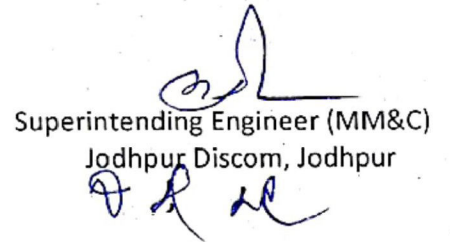 Superintending Engineer (MM&C)
Jodhpur Discom, Jodhpur